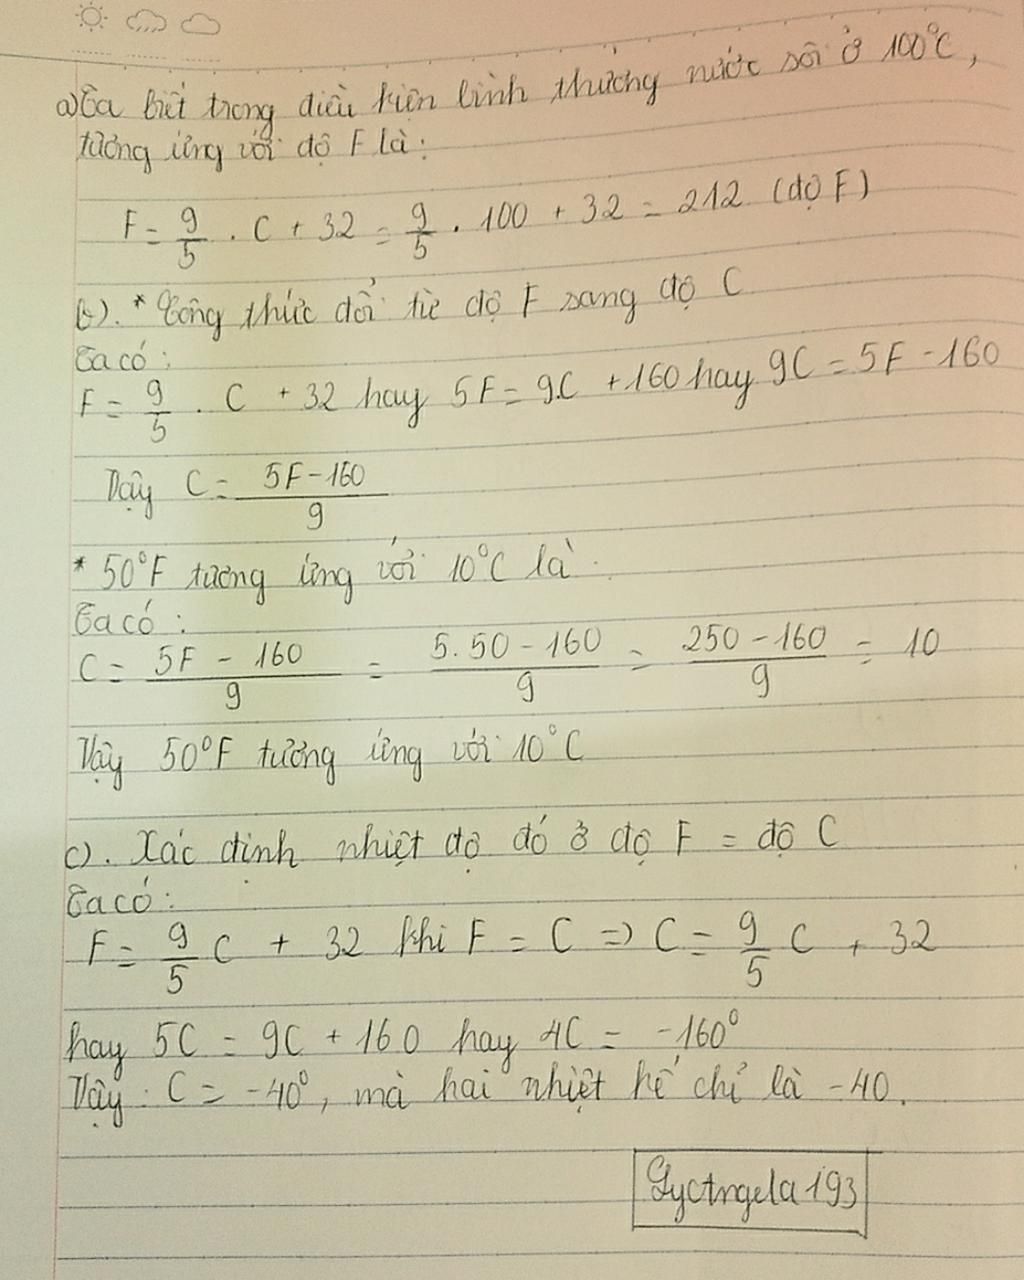 a) Ta biết trong điều kiện bình thường nước sôi ở 100°C,
tương ứng với độ F là:
F = 9/5 . C + 32 = 9/5 . 100 + 32 = 212 (độ F)
b). * Công thức đổi từ độ F sang độ C
Ta có:
F = 9/5 . C + 32 hay 5F = 9C + 160 hay 9C = 5F - 160
Vậy C = (5F - 160)/9
* 50°F tương ứng với 10°C là
Ta có:
C = (5F - 160)/9 = (5.50 - 160)/9 = (250 - 160)/9 = 10
Vậy 50°F tương ứng với 10°C
c). Xác định nhiệt độ đó ở độ F = độ C
Ta có:
F = 9/5 C + 32 khi F = C => C = 9/5 C + 32
hay 5C = 9C + 160 hay 4C = -160°
Vậy: C = -40°, mà hai nhiệt kế chỉ là -40.
GycAngela193